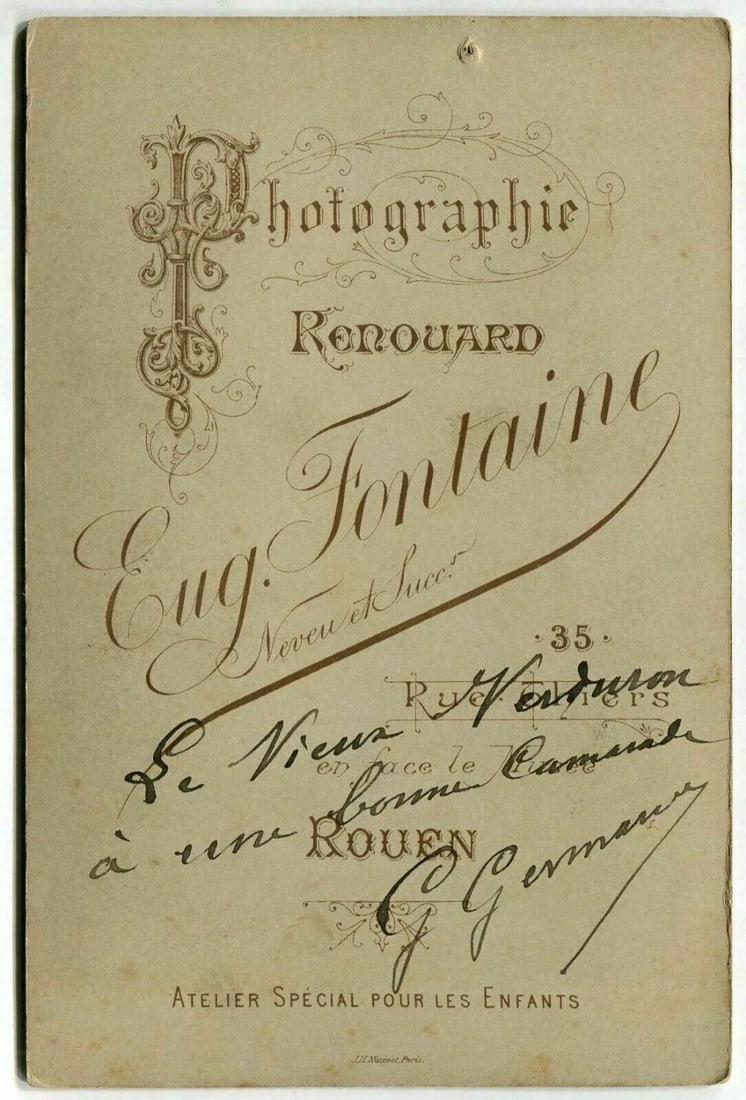 Photographie
Renouard
Eug. Fontaine
Neveu et Succ.r
·35·
Rue Thiers
en face le Musée
Rouen
Le Vieux Verduron
à une bonne Camarade
G Germain
Atelier Spécial pour les Enfants
J.H. Nacivet, Paris.